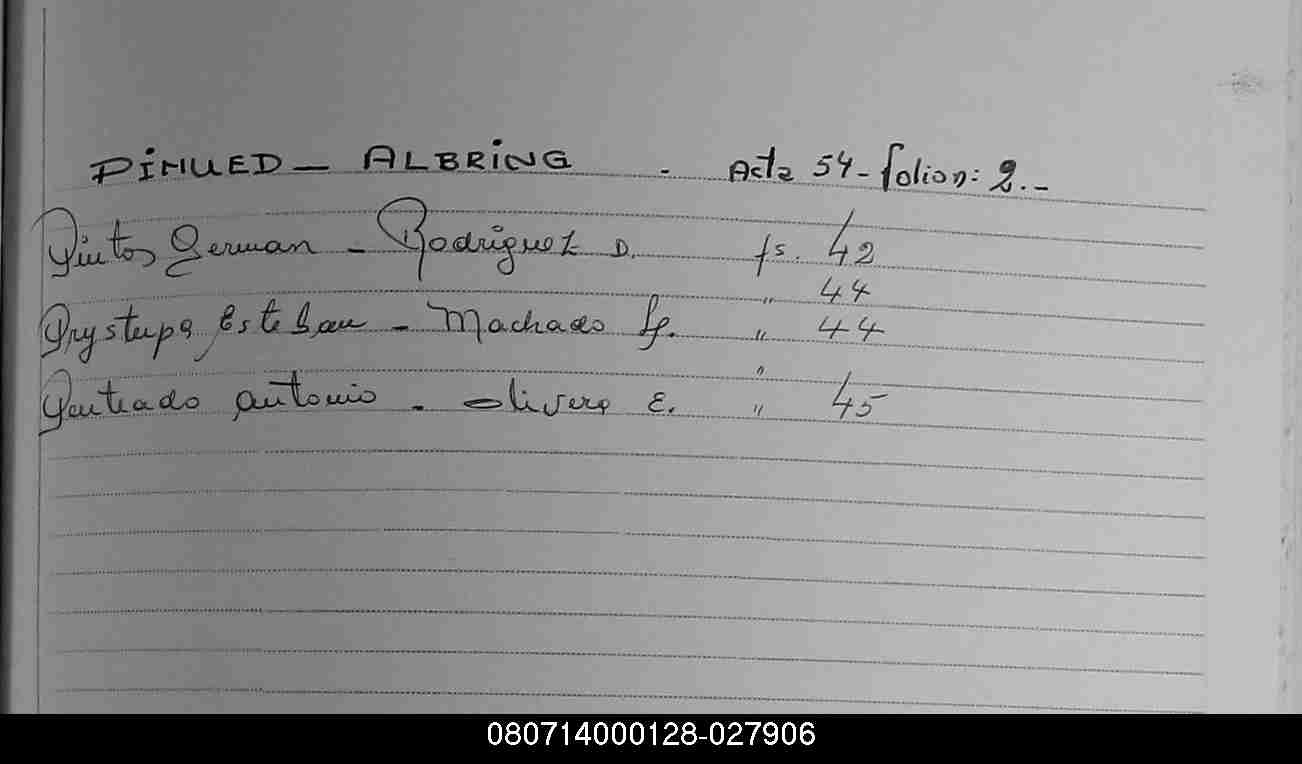 PIHUED - ALBRING . Acta 54 - folion: 2.-
Pintos German - Rodriguez D. fs. 42
" 44
Prystupa Esteban - Machado " 44
"
Penteado Antonio - Olivera E. " 45
080714000128-027906